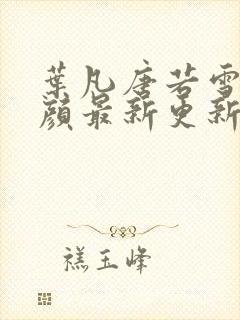 葉凡唐若雪
顏最新更新
禚玉峰